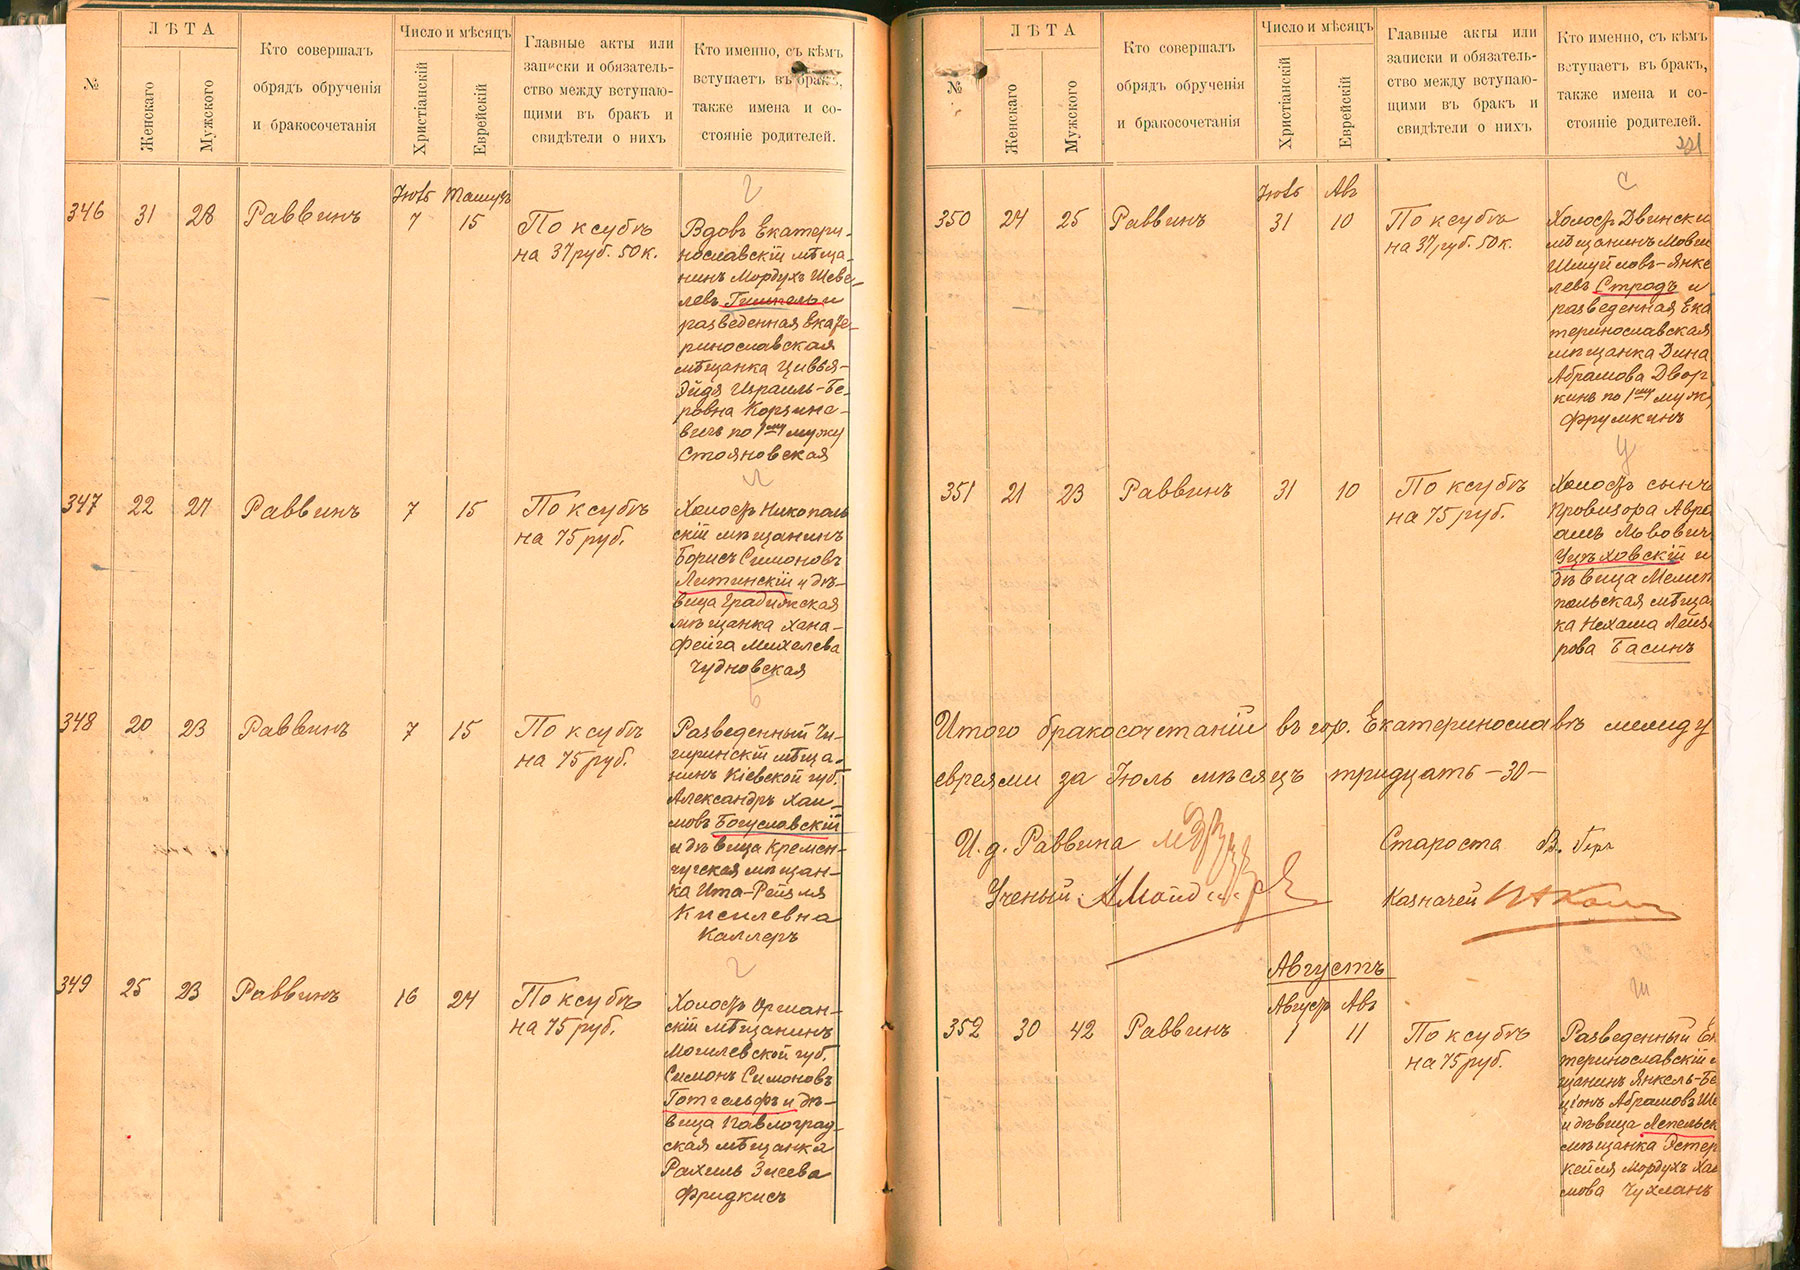 №
ЛѢТА
Женскаго
Мужского
Кто совершалъ
обрядъ обрученія
и бракосочетанія
Число и мѣсяцъ
Христіанскій
Еврейскій
Главные акты или
записки и обязатель-
ство между вступаю-
щими въ бракъ и
свидѣтели о нихъ
Кто именно, съ кѣмъ
вступаетъ въ бракъ,
также имена и со-
стояніе родителей.
Г
346 31 28 Раввинъ
Іюль Тамузъ
7 15
По ксубѣ
на 37 руб. 50 к.
Вдовъ Екатери-
нославскій мѣща-
нинъ Мордухъ Шеве-
левъ и
разведенная Екате-
ринославская
мѣщанка Цивья-
Эйдя Израиль-Бе-
ровна Корзине-
вичъ по 1му мужу
Стояновская
Л
347 22 27 Раввинъ 7 15
По ксубѣ
на 75 руб.
Холостъ Никополь
скій мѣщанинъ
Борисъ Симоновъ
Литинскій и дѣ-
вица Градижская
мѣщанка Хана-
Фейга Михелева
Чудновская
Б
348 20 23 Раввинъ 7 15
По ксубѣ
на 75 руб.
Разведенный Чи-
гиринскій мѣща-
нинъ Кіевской губ.
Александръ Хаи-
мовъ Богуславскій
и дѣвица Кремен-
чугская мѣщан-
ка Ита-Рейзля
Кисилевна
Каллеръ
Г
349 25 23 Раввинъ 16 24
По ксубѣ
на 75 руб.
Холостъ Оршан-
скій мѣщанинъ
Могилевской губ.
Симонъ Симоновъ
Готгельфъ и дѣ-
вица Павлоград-
ская мѣщанка
Рахиль Зисева
Фридкисъ
№
ЛѢТА
Женскаго
Мужского
Кто совершалъ
обрядъ обрученія
и бракосочетанія
Число и мѣсяцъ
Христіанскій
Еврейскій
Главные акты или
записки и обязатель-
ство между вступаю-
щими въ бракъ и
свидѣтели о нихъ
Кто именно, съ кѣмъ
вступаетъ въ бракъ,
также имена и со-
стояніе родителей.
221
С
350 24 25 Раввинъ
Іюль Авъ
31 10
По ксубѣ
на 37 руб. 50 к.
Холостъ Двински
мѣщанинъ Мовш
Шмуйловъ-Янке
левъ Стродъ и
разведенная Ека
теринославская
мѣщанка Дина
Абрамова Двор
кинъ по 1му муж
Фрумкинъ
У
351 21 23 Раввинъ 31 10
По ксубѣ
на 75 руб.
Холостъ сынъ
провизора Авра
амъ Львович
Уцѣховскій и
дѣвица Мелит
польская мѣща
ка Нехама Лейз
рова Басинъ
Итого бракосочетаній въ гор. Екатеринославѣ между
евреями за Іюль мѣсяцъ тридцать -30-
И. д. Раввина
Староста В. Герч
Ученый:
Казначей
Августъ
Ш
352 30 42 Раввинъ
Августъ Авъ
1 11
По ксубѣ
на 75 руб.
Разведенный Ек
теринославскій м
щанинъ Янкель-Бе
ціонъ Абрамовъ Ше
и дѣвица Лепельск
мѣщанка Эстер
Кейля Мордухъ Хаи
мова Чухманъ